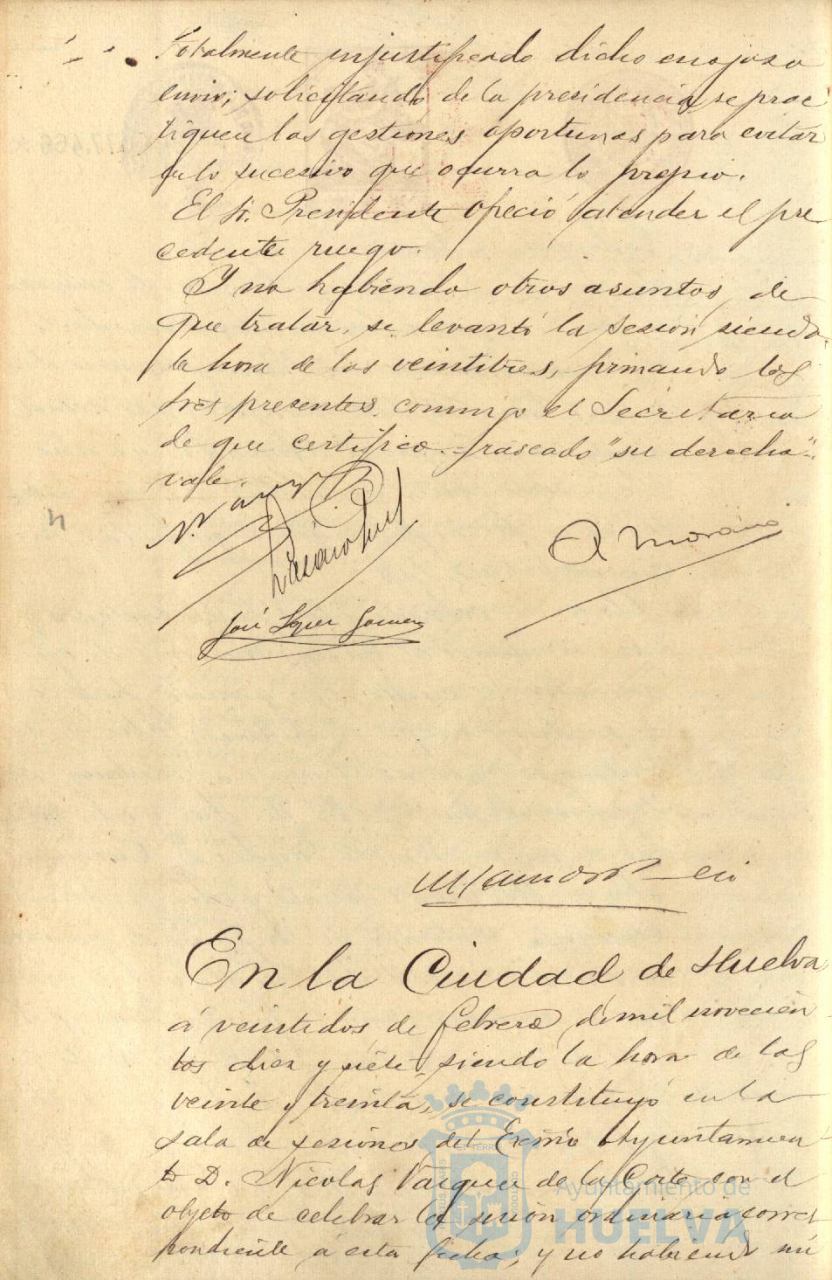 totalmente injustificado dicho enojoso
envio; solicitando de la presidencia, se prac
tiquen las gestiones oportunas para evitar
en lo sucesivo que ocurra lo propio.
El Sr. Presidente ofreció atender el pre
cedente ruego.
Y no habiendo otros asuntos de
que tratar, se levantó la sesión siendo
la hora de las veintitres, firmando los
Sres presentes, conmigo el Secretario
de que certifico.= rascado "su derecha"
vale.
A Moreno
José López Gómez
En la Ciudad de Huelva
á veintidos de febrero de mil novecien
tos diez y siete, siendo la hora de las
veinte y treinta, se constituyó en la
sala de sesiones del Excmo Ayuntamien
to D. Nicolas Vazquez de la Corte con el
objeto de celebrar la sesión ordinaria corres
pondiente á esta fecha; y no habiendo nú
Ayuntamiento de
HUELVA